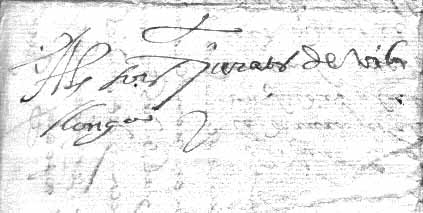 Als sors Jurats de vila
Longa